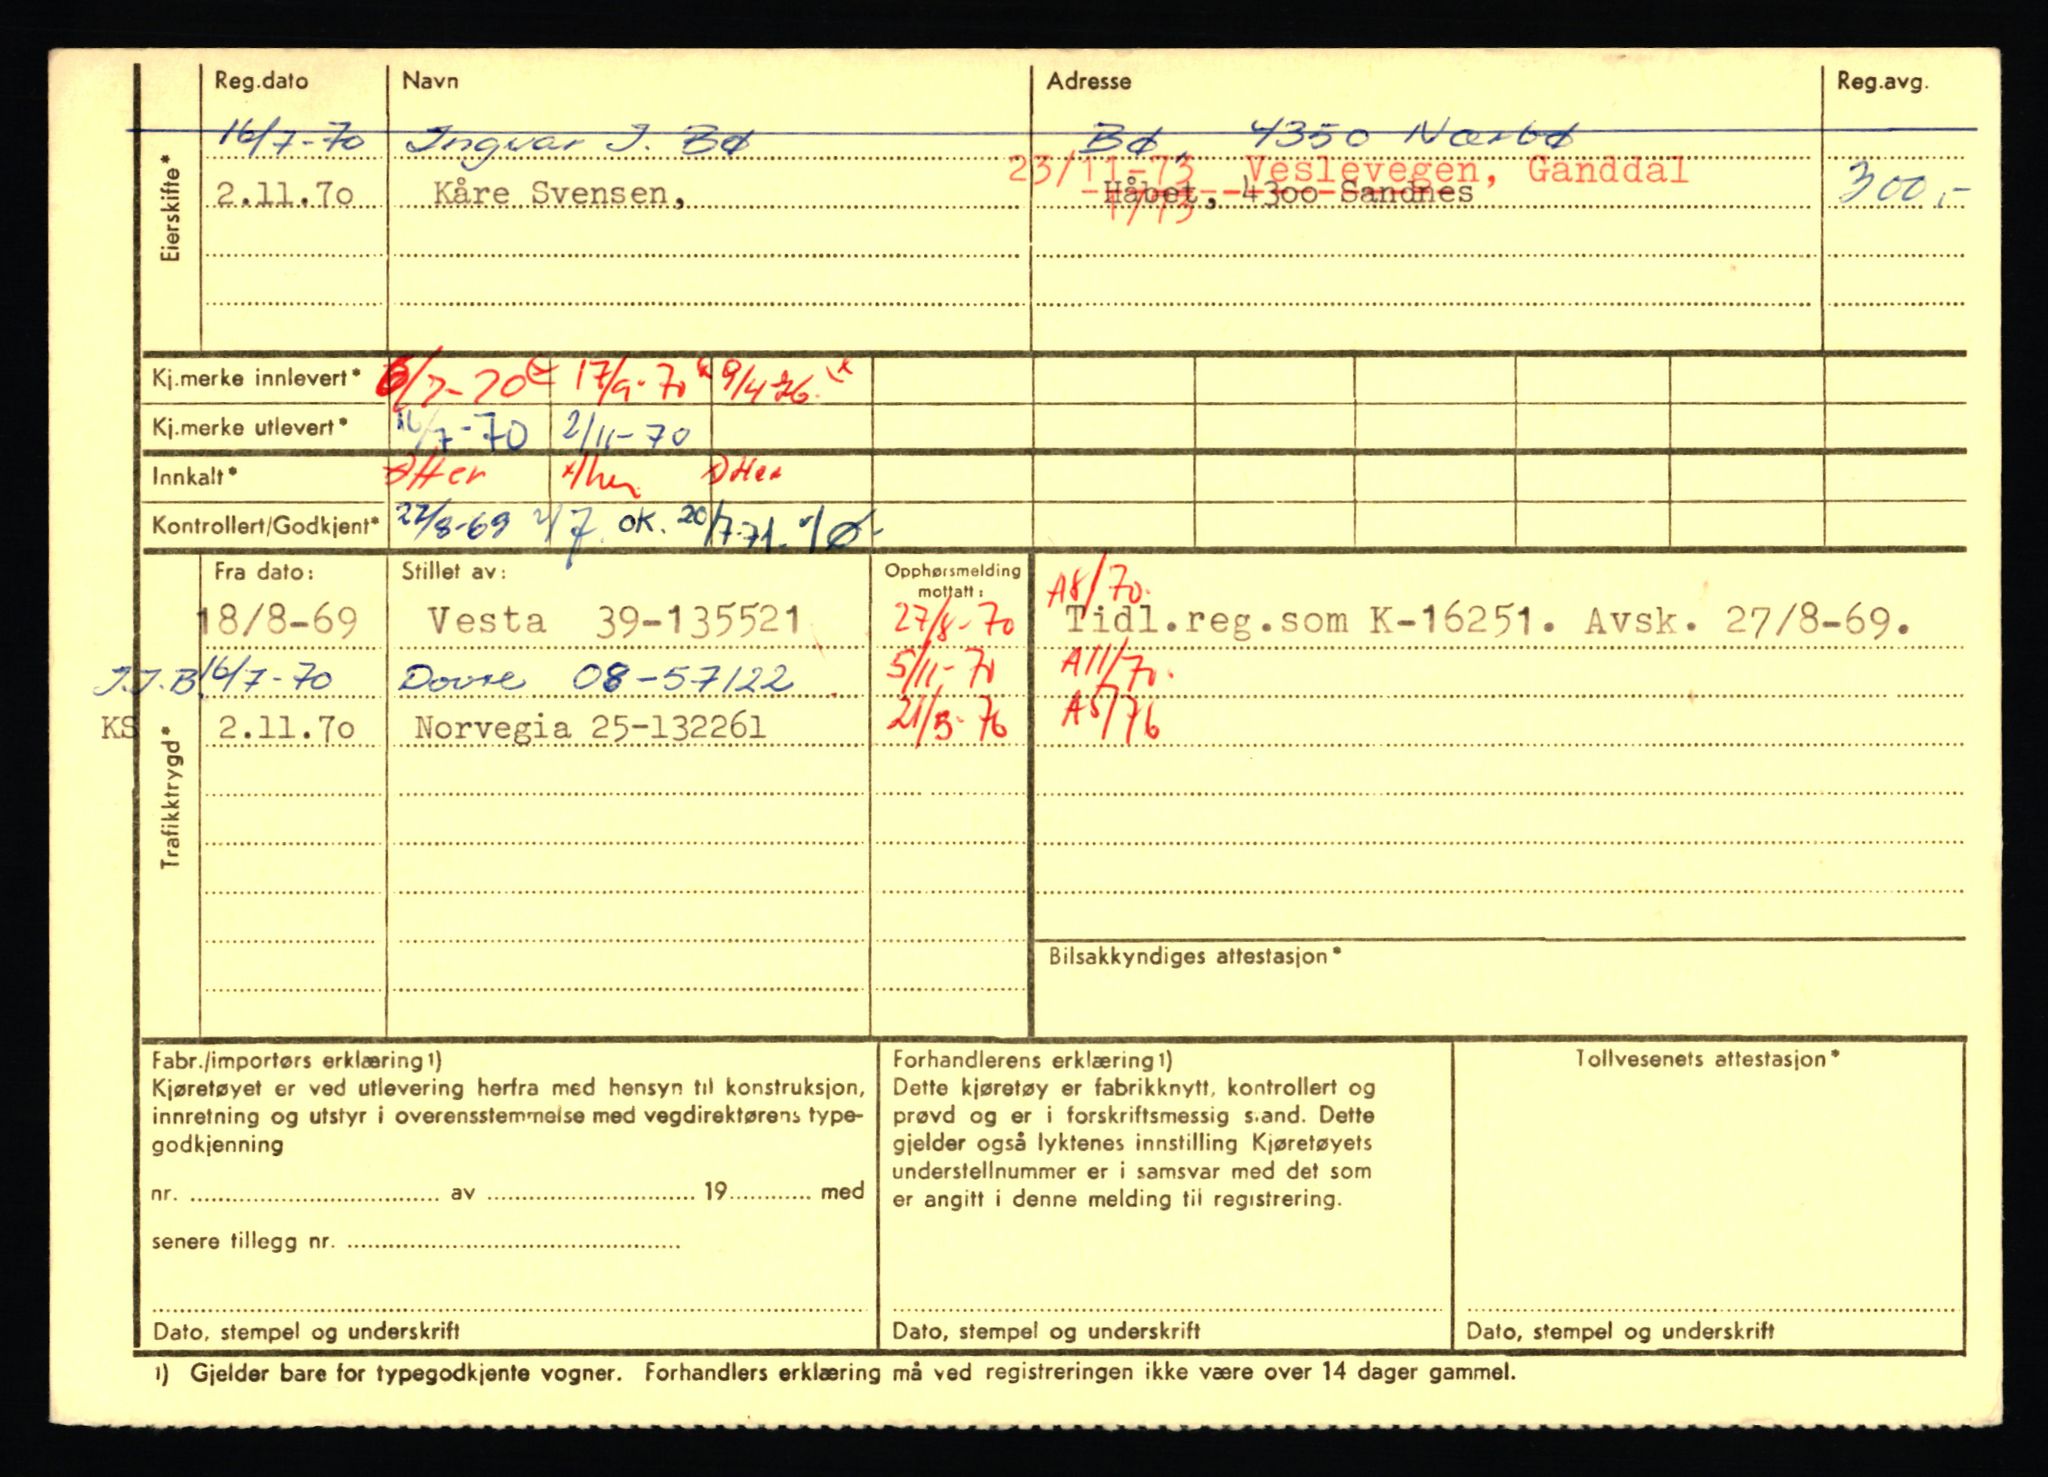 Reg.dato Navn Adresse Reg.avg.
16/7-70 Ingvar J. Bø Bø, 4350 Nærbø
23/11-73 Veslevegen, Ganddal
2.11.70 Kåre Svensen, Håbet, 4300 Sandnes 300,-
1/73
Eierskifte*
Kj.merke innlevert* 6/7-70 17/9-70 9/4-76
Kj.merke utlevert* 16/7-70 2/11-70
Innkalt*
Kontrollert/Godkjent* 22/8-69 2/7 OK. 20/7-71
Fra dato: Stillet av: Opphørsmelding mottatt:
A8/70.
18/8-69 Vesta 39-135521 27/8-70 Tidl.reg.som K-16251. Avsk. 27/8-69.
J.J.B. 16/7-70 Dovre 08-57122 5/11-70 A11/70.
KS 2.11.70 Norvegia 25-132261 21/5-76 A5/76
Trafikktrygd*
Bilsakkyndiges attestasjon*
Fabr./importørs erklæring1)
Kjøretøyet er ved utlevering herfra med hensyn til konstruksjon,
innretning og utstyr i overensstemmelse med vegdirektørens type-
godkjenning
nr. .................... av .................... 19............ med
senere tillegg nr. ....................
Dato, stempel og underskrift
Forhandlerens erklæring1)
Dette kjøretøy er fabrikknytt, kontrollert og
prøvd og er i forskriftsmessig stand. Dette
gjelder også lyktenes innstilling Kjøretøyets
understellnummer er i samsvar med det som
er angitt i denne melding til registrering.
Dato, stempel og underskrift
Tollvesenets attestasjon*
Dato, stempel og underskrift
1) Gjelder bare for typegodkjente vogner. Forhandlers erklæring må ved registreringen ikke være over 14 dager gammel.